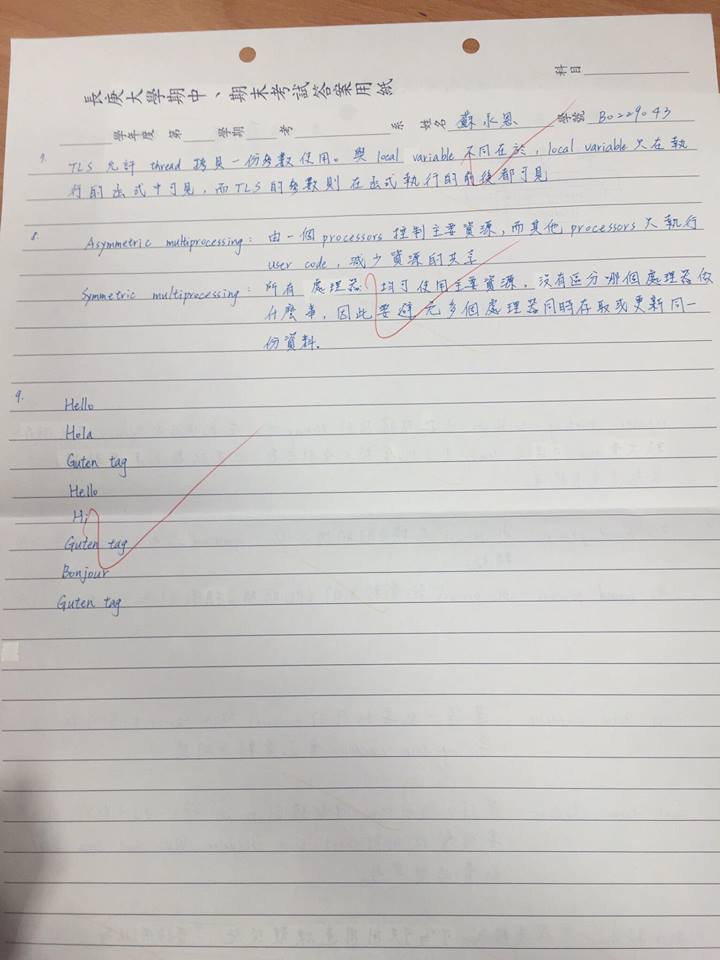 科目
長庚大學期中、期末考試答案用紙
學年度 第 學期 考 系 姓名 蘇永恩 學號 B0229043
7. TLS 允許 thread 擁有一份參數使用。與 local variable 不同在於, local variable 只在執
行的函式中可見, 而TLS 的參數則在函式執行的前後都可見
8. Asymmetric multiprocessing: 由一個 processors 控制主要資源, 而其他 processors 只執行
user code, 減少資源的共享
Symmetric multiprocessing: 所有處理器均可使用主要資源, 沒有區分哪個處理器做
什麼事, 因此要避免多個處理器同時存取或更新同一
份資料.
9. Hello
Hola
Guten tag
Hello
Hi
Guten tag
Bonjour
Guten tag